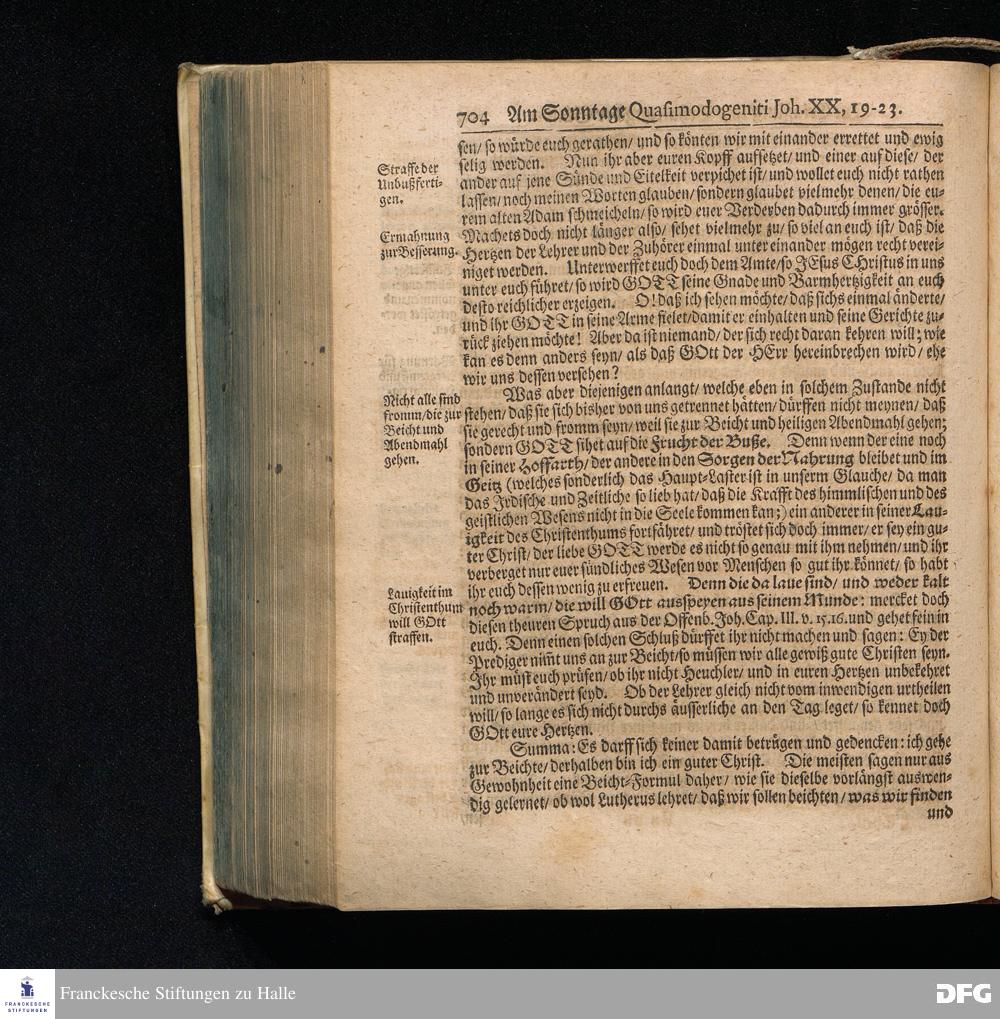 704 Am Sonntage Quasimodogeniti Joh. XX, 19-23.
sen/ so würde euch gerathen/ und so könten wir mit einander errettet und ewig
selig werden. Nun ihr aber euren Kopff aufsetzet/ und einer auf diese/ der
ander auf jene Sünde und Eitelkeit verpichet ist/ und wollet euch nicht rathen
lassen/ noch meinen Worten glauben/ sondern glaubet vielmehr denen/ die eu-
rem alten Adam schmeicheln/ so wird euer Verderben dadurch immer grösser.
Machets doch nicht länger also/ sehet vielmehr zu/ so viel an euch ist/ daß die
Hertzen der Lehrer und der Zuhörer einmal unter einander mögen recht verei-
niget werden. Unterwerffet euch doch dem Amte/ so JEsus CHristus in uns
unter euch führet/ so wird GOTT seine Gnade und Barmhertzigkeit an euch
desto reichlicher erzeigen. O! daß ich sehen möchte/ daß sichs einmal änderte/
und ihr GOTT in seine Arme fielet/ damit er einhalten und seine Gerichte zu-
rück ziehen möchte! Aber da ist niemand/ der sich recht daran kehren will; wie
kan es denn anders seyn/ als daß GOtt der HErr hereinbrechen wird/ ehe
wir uns dessen versehen?
Was aber diejenigen anlangt/ welche eben in solchem Zustande nicht
stehen/ daß sie sich bisher von uns getrennet hätten/ dürffen nicht meynen/ daß
sie gerecht und fromm seyn/ weil sie zur Beicht und heiligen Abendmahl gehen;
sondern GOTT sihet auf die Frucht der Buße. Denn wenn der eine noch
in seiner Hoffarth/ der andere in den Sorgen der Nahrung bleibet und im
Geitz (welches sonderlich das Haupt-Laster ist in unserm Glauche/ da man
das Irdische und Zeitliche so lieb hat/ daß die Krafft des himmlischen und des
geistlichen Wesens nicht in die Seele kommen kan;) ein anderer in seiner Lau-
igkeit des Christenthums fortfähret/ und tröstet sich doch immer/ er sey ein gu-
ter Christ/ der liebe GOTT werde es nicht so genau mit ihm nehmen/ und ihr
verberget nur euer sündliches Wesen vor Menschen so gut ihr könnet/ so habt
ihr euch dessen wenig zu erfreuen. Denn die da laue sind/ und weder kalt
noch warm/ die will GOtt ausspeyen aus seinem Munde: mercket doch
diesen theuren Spruch aus der Offenb. Joh. Cap. III. v. 15. 16. und gehet fein in
euch. Denn einen solchen Schluß dürffet ihr nicht machen und sagen: Ey der
Prediger nim̅t uns an zur Beicht/ so müssen wir alle gewiß gute Christen seyn.
Ihr müst euch prüfen/ ob ihr nicht Heuchler/ und in euren Hertzen unbekehret
und unverändert seyd. Ob der Lehrer gleich nicht vom inwendigen urtheilen
will/ so lange es sich nicht durchs äusserliche an den Tag leget/ so kennet doch
GOtt eure Hertzen.
Summa: Es darff sich keiner damit betrügen und gedencken: ich gehe
zur Beichte/ derhalben bin ich ein guter Christ. Die meisten sagen nur aus
Gewohnheit eine Beicht-Formul daher/ wie sie dieselbe vorlängst auswen-
dig gelernet/ ob wol Lutherus lehret/ daß wir sollen beichten/ was wir finden
und
Straffe der
Unbußferti-
gen.
Ermahnung
zur Besserung.
Nicht alle sind
fromm/ die zur
Beicht und
Abendmahl
gehen.
Lauigkeit im
Christenthum
will GOtt
straffen.
FRANCKESCHE
STIFTUNGEN
Franckesche Stiftungen zu Halle
DFG